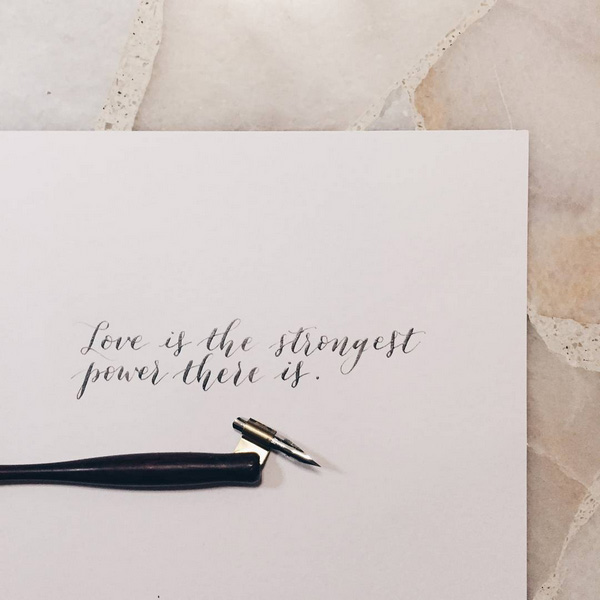 Love is the strongest
power there is.